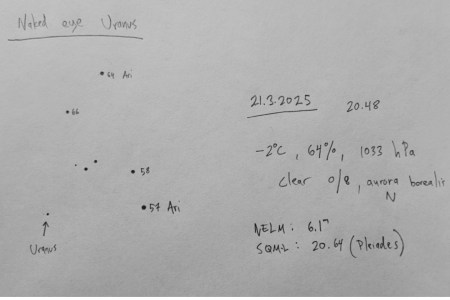 Naked eye Uranus
64 Ari
66
58
57 Ari
Uranus
21.3.2025 20.48
-2°C, 64%, 1033 hPa
clear 0/8, aurora borealis
N
NELM: 6.1m
SQM-L: 20.64 (Pleiades)